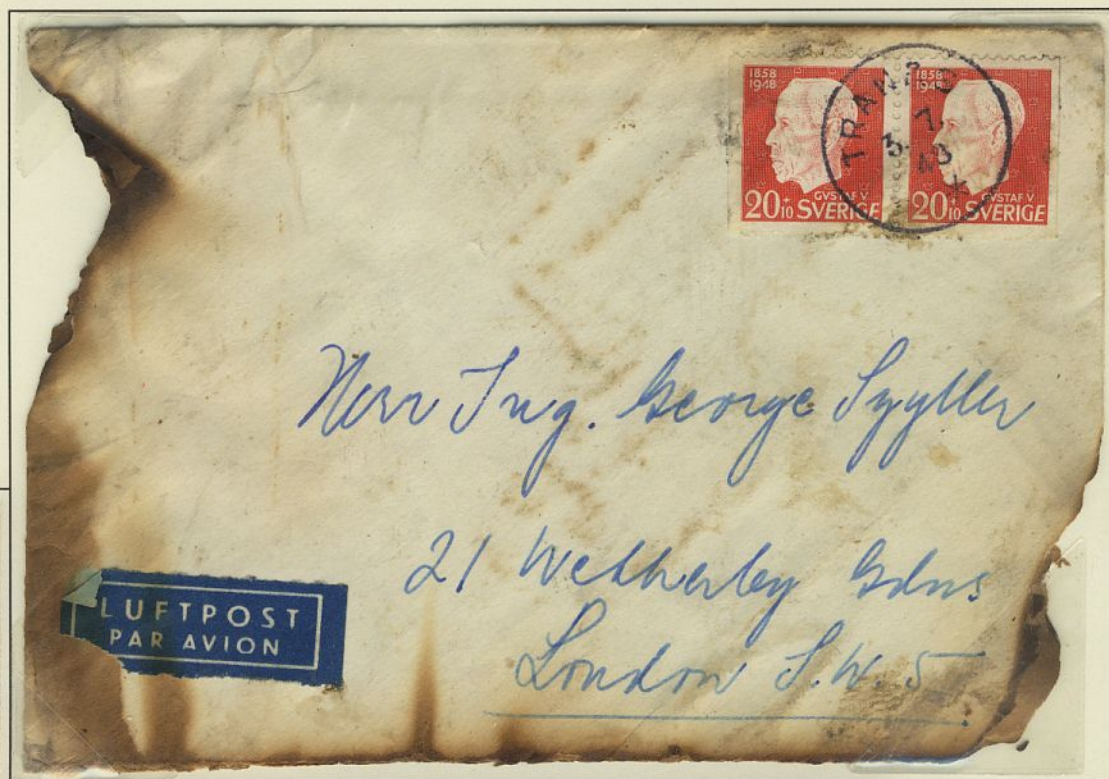 1858
1948
GVSTAF V
20+10 SVERIGE
1858
GVSTAF V
20+10 SVERIGE
3. 7.
48
Herr Ing. George
21 Wetherby Gdns
London S.W. 5
LUFTPOST
PAR AVION